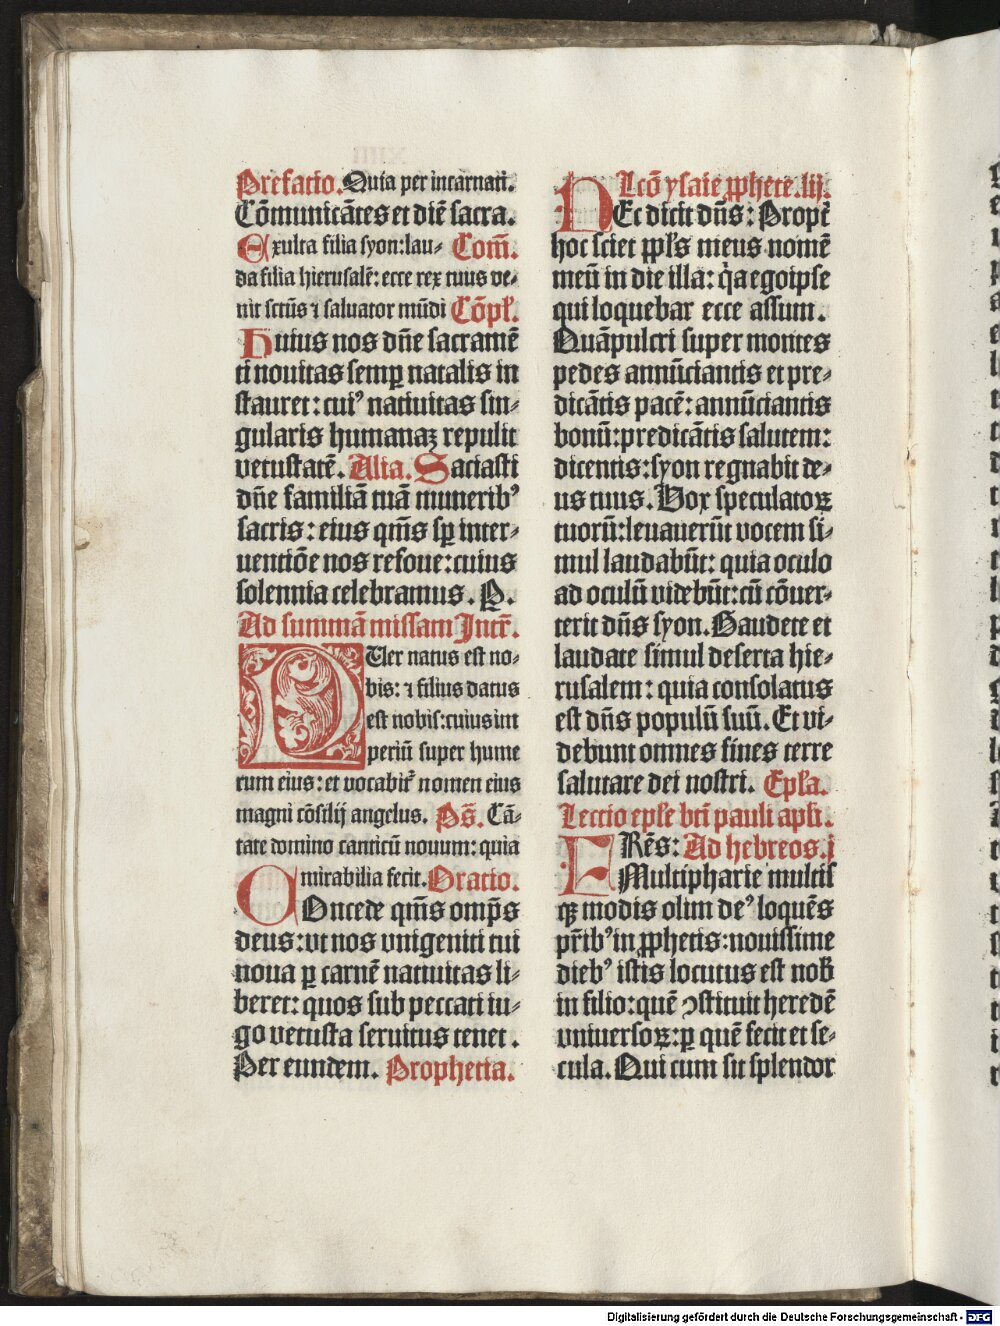 Prefatio. Quia per incarnati.
Cōmunicātes et diē sacra.
Exulta filia syon: lau⸗ Com̄.
da filia hierusalē: ecce rex tuus ve⸗
nit sctūs ⁊ saluator mūdi Cōpl'.
Huius nos dn̄e sacramē
ti nouitas semꝑ natalis in
stauret: cuiꝰ natiuitas sin⸗
gularis humanaꝫ repulit
vetustatē. Alia. Saciasti
dn̄e familiā tuā muneribꝰ
sacris: eius qm̄s sꝑ inter⸗
uentiōe nos refoue: cuius
solennia celebramus. P.
Ad summā missam Intr̄.
PUer natus est no⸗
bis: ⁊ filius datus
est nobis: cuius im
periū super hume
rum eius: et vocabit̄ nomen eius
magni cōsilij angelus. Ps̄. Cā⸗
tate domino canticū nouum: quia
mirabilia fecit. Oratio.
COncede qm̄s omp̄s
deus: vt nos vnigeniti tui
noua ꝑ carnē natiuitas li⸗
beret: quos sub peccati iu⸗
go vetusta seruitus tenet.
Per eundem. Prophetia.
Lcō ysaie ꝓphete. lij.
HEc dicit dn̄s: Propt̄
hoc sciet ppl̄s meus nomē
meū in die illa: q̇a ego ipse
qui loquebar ecce assum.
Quā pulcri super montes
pedes annūciantis et pre⸗
dicātis pacē: annūciantis
bonū: predicātis salutem:
dicentis: syon regnabit de⸗
us tuus. Vox speculatoꝝ
tuorū: leuauerūt vocem si⸗
mul laudabūt: quia oculo
ad oculū videbūt: cū cōuer⸗
terit dn̄s syon. Gaudete et
laudate simul deserta hie⸗
rusalem: quia consolatus
est dn̄s populū suū. Et vi⸗
debunt omnes fines terre
salutare dei nostri. Epl̄a.
Lectio epl̄e bt̄i pauli apl̄i.
FRēs: Ad hebreos. j
Multipharie multis
qꝫ modis olim deꝰ loquēs
pr̄ibꝰ in ꝓphetis: nouissime
diebꝰ istis locutus est nob̄
in filio: quē ꝯstituit heredē
vniuersoꝝ: ꝑ quē fecit et se⸗
cula. Qui cum sit splendor
Digitalisierung gefördert durch die Deutsche Forschungsgemeinschaft - DFG